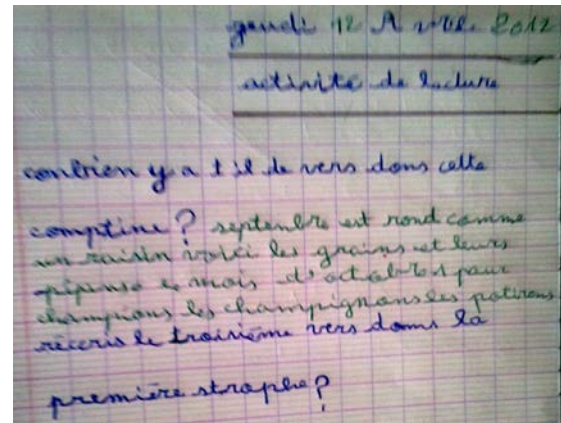 jeudi 12 A vril 2012
activité de lecture
combien y a t il de vers dans cette
comptine ? septembre est rond comme
un raisin voici les grains et leurs
pépins e mois d'octobre pour
champions les champignons les potirons
réecris le troisième vers dans la
première strophe ?